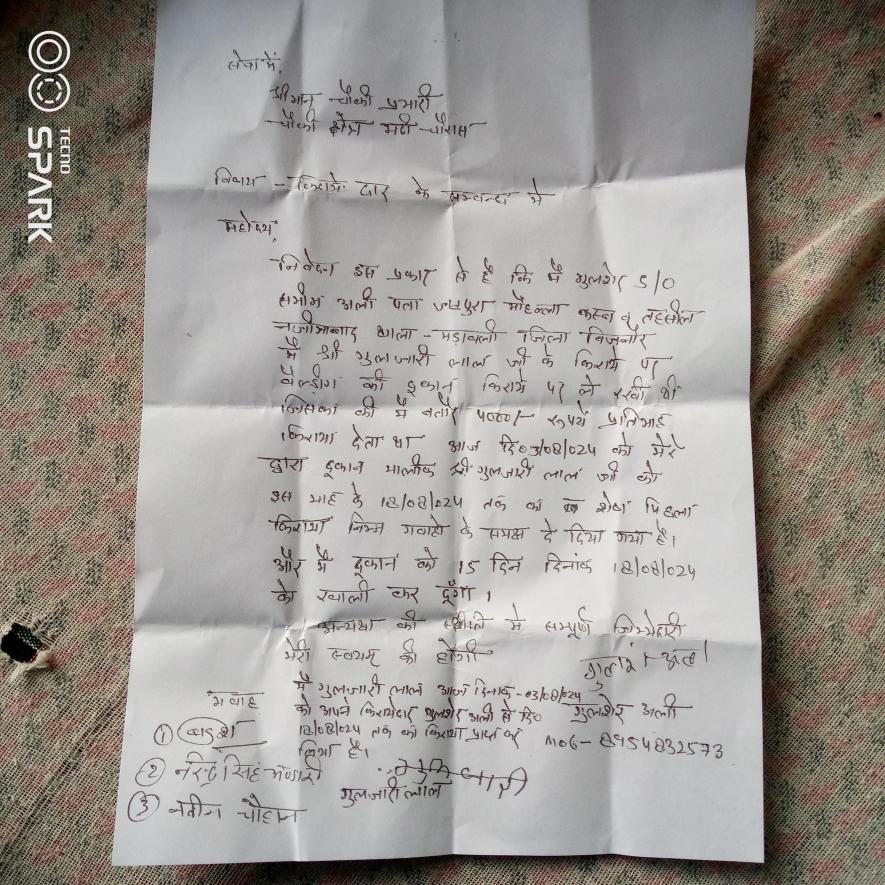 सेवा में,
श्रीमान चौकी प्रभारी
चौकी क्षेत्र चौरास
विषय - किराये दार के सम्बन्ध मे
महोदय,
निवेदन इस प्रकार से है कि मैं गुलशेर S/O
शमीम अली पता मौहल्ला कस्बा व तहसील
नजीमाबाद थाना - मडावली जिला बिजनौर
मैं श्री गुलजारी लाल जी के किराये पर
वैल्डींग की दुकान किराये पर ले रखी थी
जिसका की मैं बतौर 4000/- रूपये प्रतिमाह
किराया देता था आज दि0 03/08/024 को मेरे
द्वारा दूकान मालीक श्री गुलजारी लाल जी को
इस माह के 18/08/024 तक का शेष पिछला
किराया निम्न गवाहो के समक्ष दे दिया गया है।
और मैं दूकान को 15 दिन दिनांक 18/08/024
को खाली कर दूँगा।
अन्यथा की स्थिति मे सम्पूर्ण जिम्मेदारी
मेरी स्वयम् की होगी
मैं गुलजारी लाल आज दिनांक - 03/08/024
को अपने किरायेदार गुलशेर अली से दि0
18/08/024 तक का किराया प्राप्त कर
लिया है।
गुलशेर अली
MOB- 8954832573
गवाह
①
② नरेन्द्र सिंह भण्डारी
③ नवीन चौहान
गुलजारी लाल
TECNO
SPARK